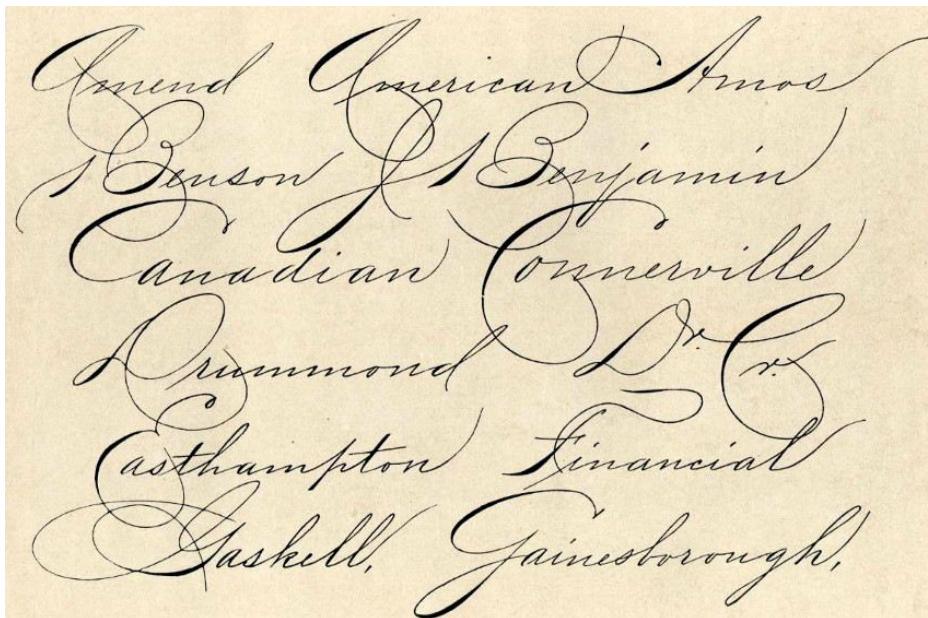 Amend American Amos
Benson J Benjamin
Canadian Connerville
Drummond Dr. Cr.
Easthampton Financial
Gaskell, Gainesborough,